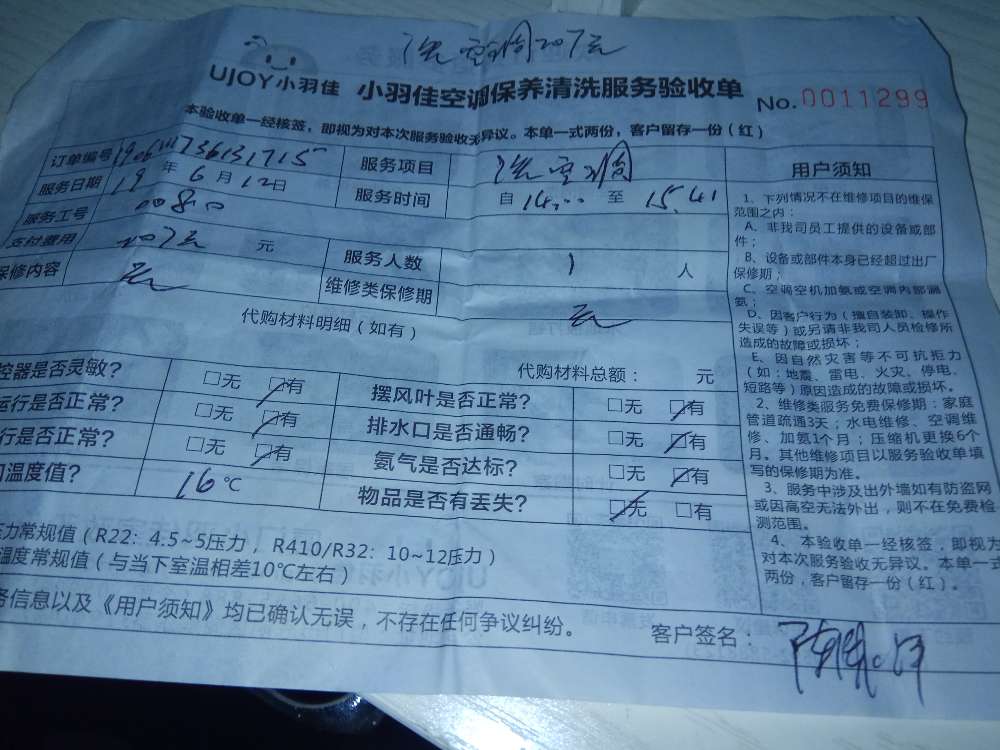 洗空调207元
UJOY小羽佳 小羽佳空调保养清洗服务验收单 No.0011299
本验收单一经核签，即视为对本次服务验收无异议。本单一式两份，客户留存一份（红）
订单编号 服务项目 洗空调
服务日期 19年6月12日 服务时间 自14:00至15.41
服务工号
支付费用 207元 元 服务人数 1人
保修内容 无 维修类保修期 无
代购材料明细（如有）
代购材料总额： 元
控器是否灵敏? □无 □有 摆风叶是否正常? □无 □有
运行是否正常? □无 □有 排水口是否通畅? □无 □有
行是否正常? □无 □有 氨气是否达标? □无 □有
温度值? 16℃ 物品是否有丢失? □无 □有
压力常规值（R22：4.5~5压力，R410/R32：10~12压力）
温度常规值（与当下室温相差10℃左右）
务信息以及《用户须知》均已确认无误，不存在任何争议纠纷。
客户签名：
用户须知
1、下列情况不在维修项目的维保
范围之内：
A、非我司员工提供的设备或部
件；
B、设备或部件本身已经超过出厂
保修期；
C、空调空机加氨或空调内部漏
氨；
D、因客户行为（擅自装卸、操作
失误等）或另请非我司人员检修所
造成的故障或损坏；
E、因自然灾害等不可抗拒力
（如：地震、雷电、火灾、停电、
短路等）原因造成的故障或损坏。
2、维修类服务免费保修期：家庭
管道疏通3天；水电维修、空调维
修、加氨1个月；压缩机更换6个
月。其他维修项目以服务验收单填
写的保修期为准。
3、服务中涉及出外墙如有防盗网
或因高空无法外出，则不在免费检
测范围。
4、本验收单一经核签，即视为
对本次服务验收无异议。本单一式
两份，客户留存一份（红）。